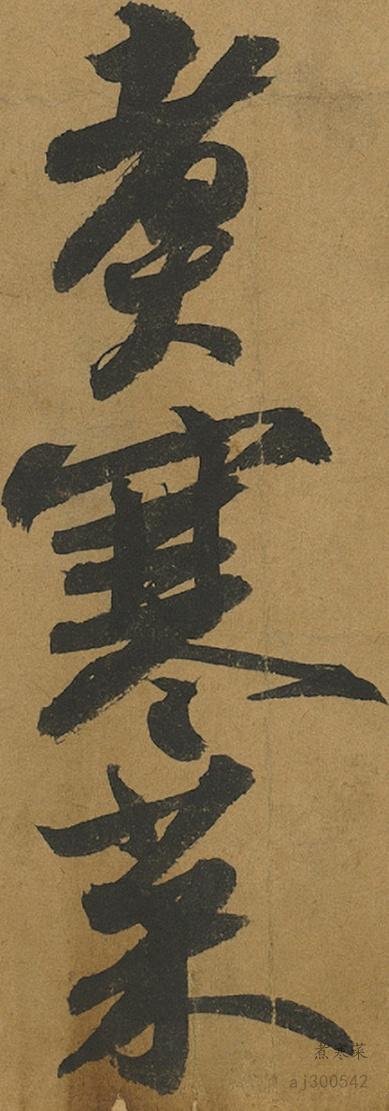 煮寒菜
煮寒菜
aj300542